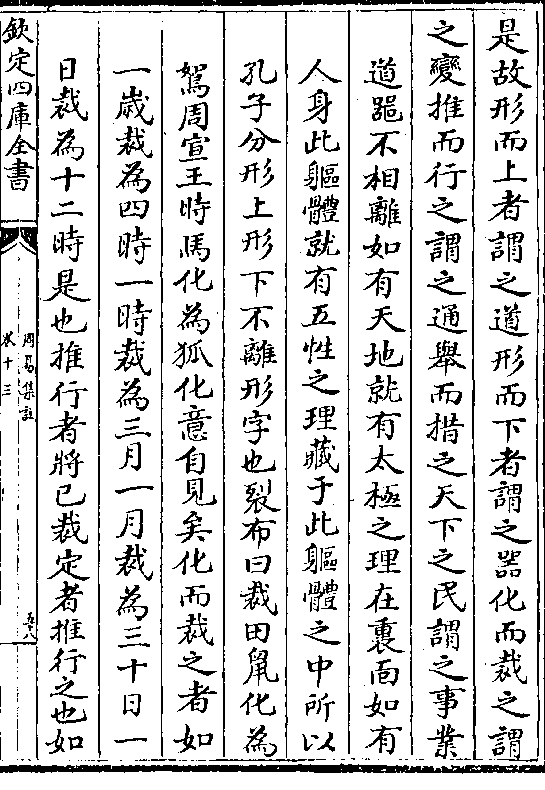 是故形而上者謂之道形而下者謂之器化而裁之謂
之變推而行之謂之通舉而措之天下之民謂之事業
道器不相離如有天地就有太極之理在裏面如有
人身此軀體就有五性之理藏于此軀體之中所以
孔子分形上形下不離形字也裂布曰裁田鼠化為
鴽周宣王時馬化為狐化意自見矣化而裁之者如
一歲裁為四時一時裁為三月一月裁為三十日一
日裁為十二時是也推行者將已裁定者推行之也如
欽定四庫全書
周易集註
卷十三
五十八